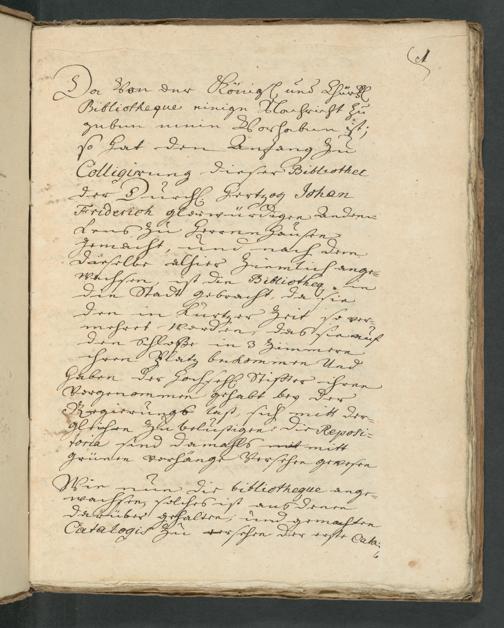 1
Da Von der Königl. und Churfl.
Bibliotheque einige Nachricht zu
geben mein Vorhaben ist;
so hat den Anfang zu
Colligirung dieser Bibliothec
der Durchl. Hertzog Johan
Friderich glorwürdigen Anden-
kens zu Herrenhausen
gemacht, und nach dem
dieselbe alhier ziemlich ange-
wachsen, ist die Bibliotheq. in
die Stadt gebracht, da sie
den in kurtzer Zeit so ver-
mehret worden, das sie auf
den Schlosse in 3 Zimmern
ihren Platz bekommen Und
haben der Hochseel. Stiffter ihren
Vorgenommen gehabt bey der
Regierungs last sich mitt der-
gleichen zu belustigen. Die Reposi-
toria sind damahls mitt
grünen vorhänge Versehen gewesen
Wie nun die bibliotheque ange-
wachsen, solches ist aus denen
darüber gehalten, und gemachten
Catalogis zu ersehen der erste Cata-